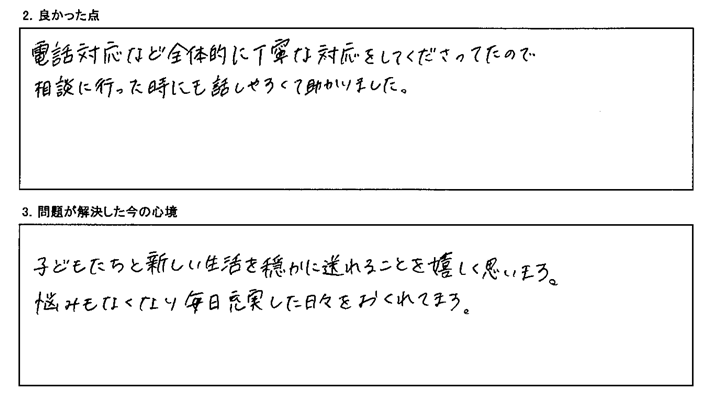 2. 良かった点
電話対応など全体的に丁寧な対応をしてくださってたので
相談に行った時にも話しやすくて助かりました。
3. 問題が解決した今の心境
子どもたちと新しい生活を穏かに送れることを嬉しく思います。
悩みもなくなり毎日充実した日々をおくれてます。